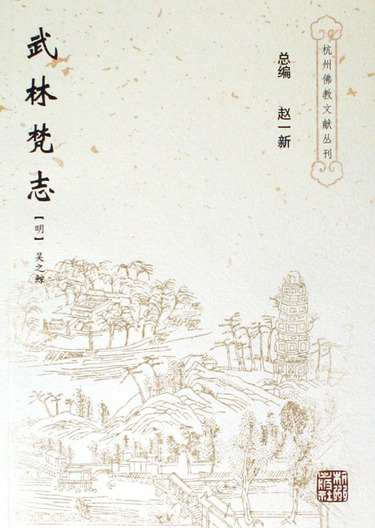 杭州佛教文献丛刊
总编 赵一新
武林梵志
【明】吴之鲸
杭州出版社